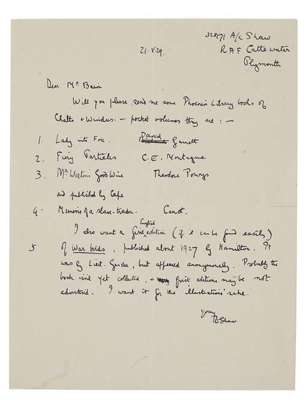 338171 A/c Shaw
RAF Cattewater
Plymouth
21.V.29.
Dear Mr Bain
Will you please send me some Phoenix Library books of
Chatto & Windus: - pocket volumes they are: -
1. Lady into Fox. David Garnett
2. Fiery Particles C.E. Montague
3. Mr Weston's Good Wine Theodore Powys
and published by Cape
4. Memoirs of a slave-trader. Canot.
I also want a first English edition (if it can be found easily)
5. Of War Birds, published about 1927 by Hamilton. It
was by Lieut. Grider, but appeared anonymously. Probably the
book isn't yet collected, - first editions may be not
advertised. I want it for the illustrations' sake.
Yours
TEShaw